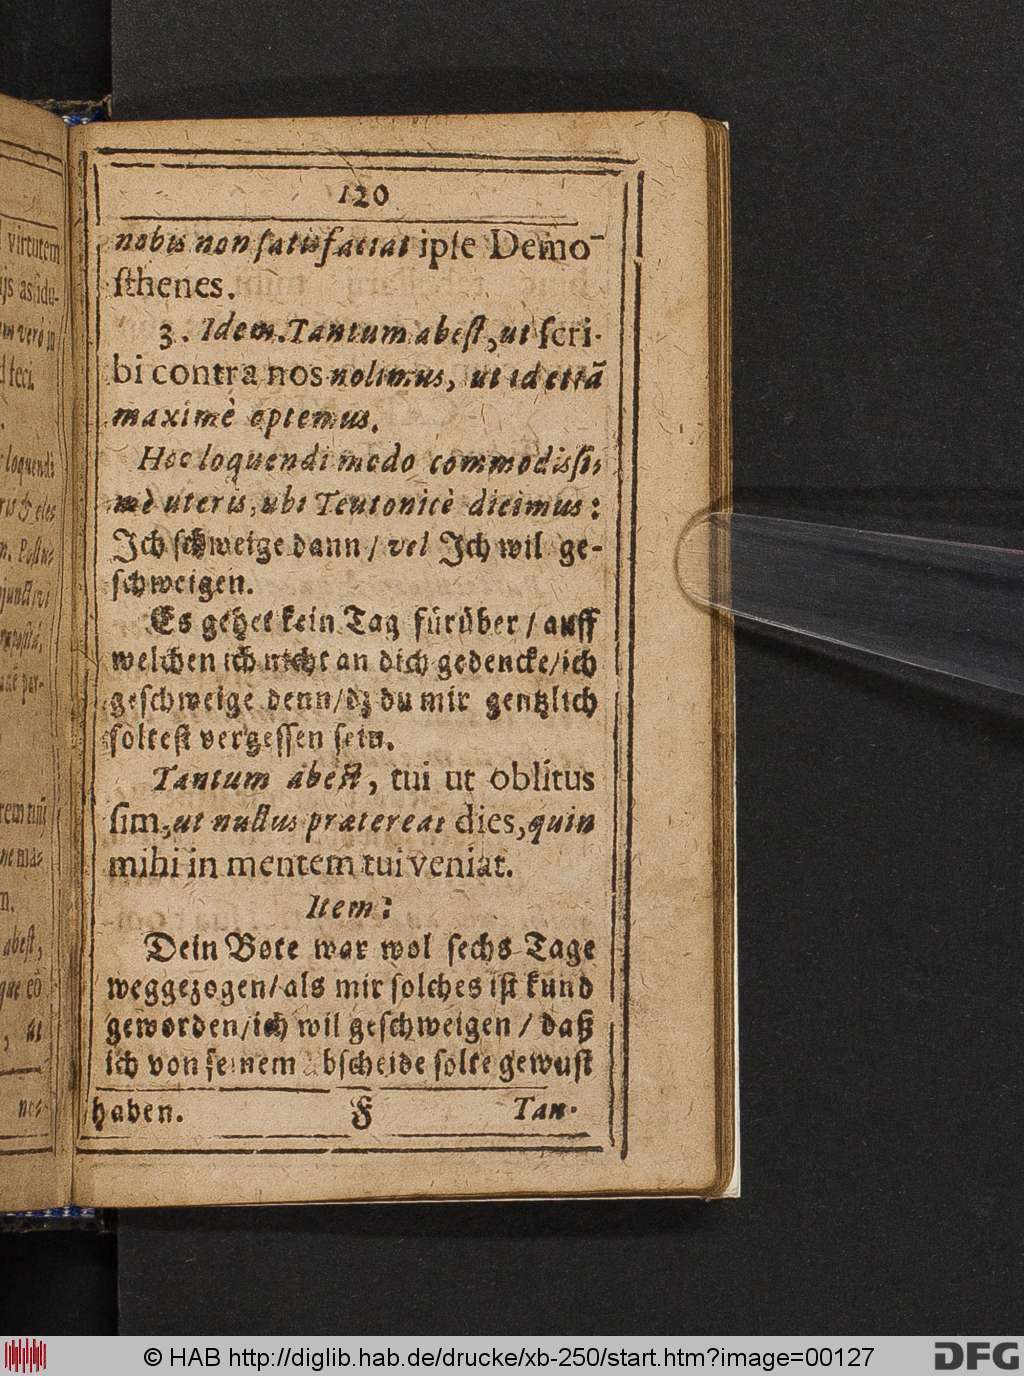 virtutem
120
nobis non satisfaciat ipse Demo-
sthenes.
3. Idem. Tantum abest, ut scri-
bi contra nos nolimus, ut id etiã
maximè optemus.
Hoc loquendi modo commodissi-
mè uteris, ubi Teutonicè dicimus:
Ich schweige dann / vel Ich wil ge-
schweigen.
Es gehet kein Tag fürüber / auff
welchen ich nicht an dich gedencke / ich
geschweige denn / dz du mir gentzlich
soltest vergessen sein.
Tantum abest, tui ut oblitus
sim, ut nullus prætereat dies, quin
mihi in mentem tui veniat.
Item:
Dein Bote war wol sechs Tage
weggezogen / als mir solches ist kund
geworden / ich wil geschweigen / daß
ich von seinem Abscheide solte gewust
haben. F Tan-
© HAB http://diglib.hab.de/drucke/xb-250/start.htm?image=00127
DFG